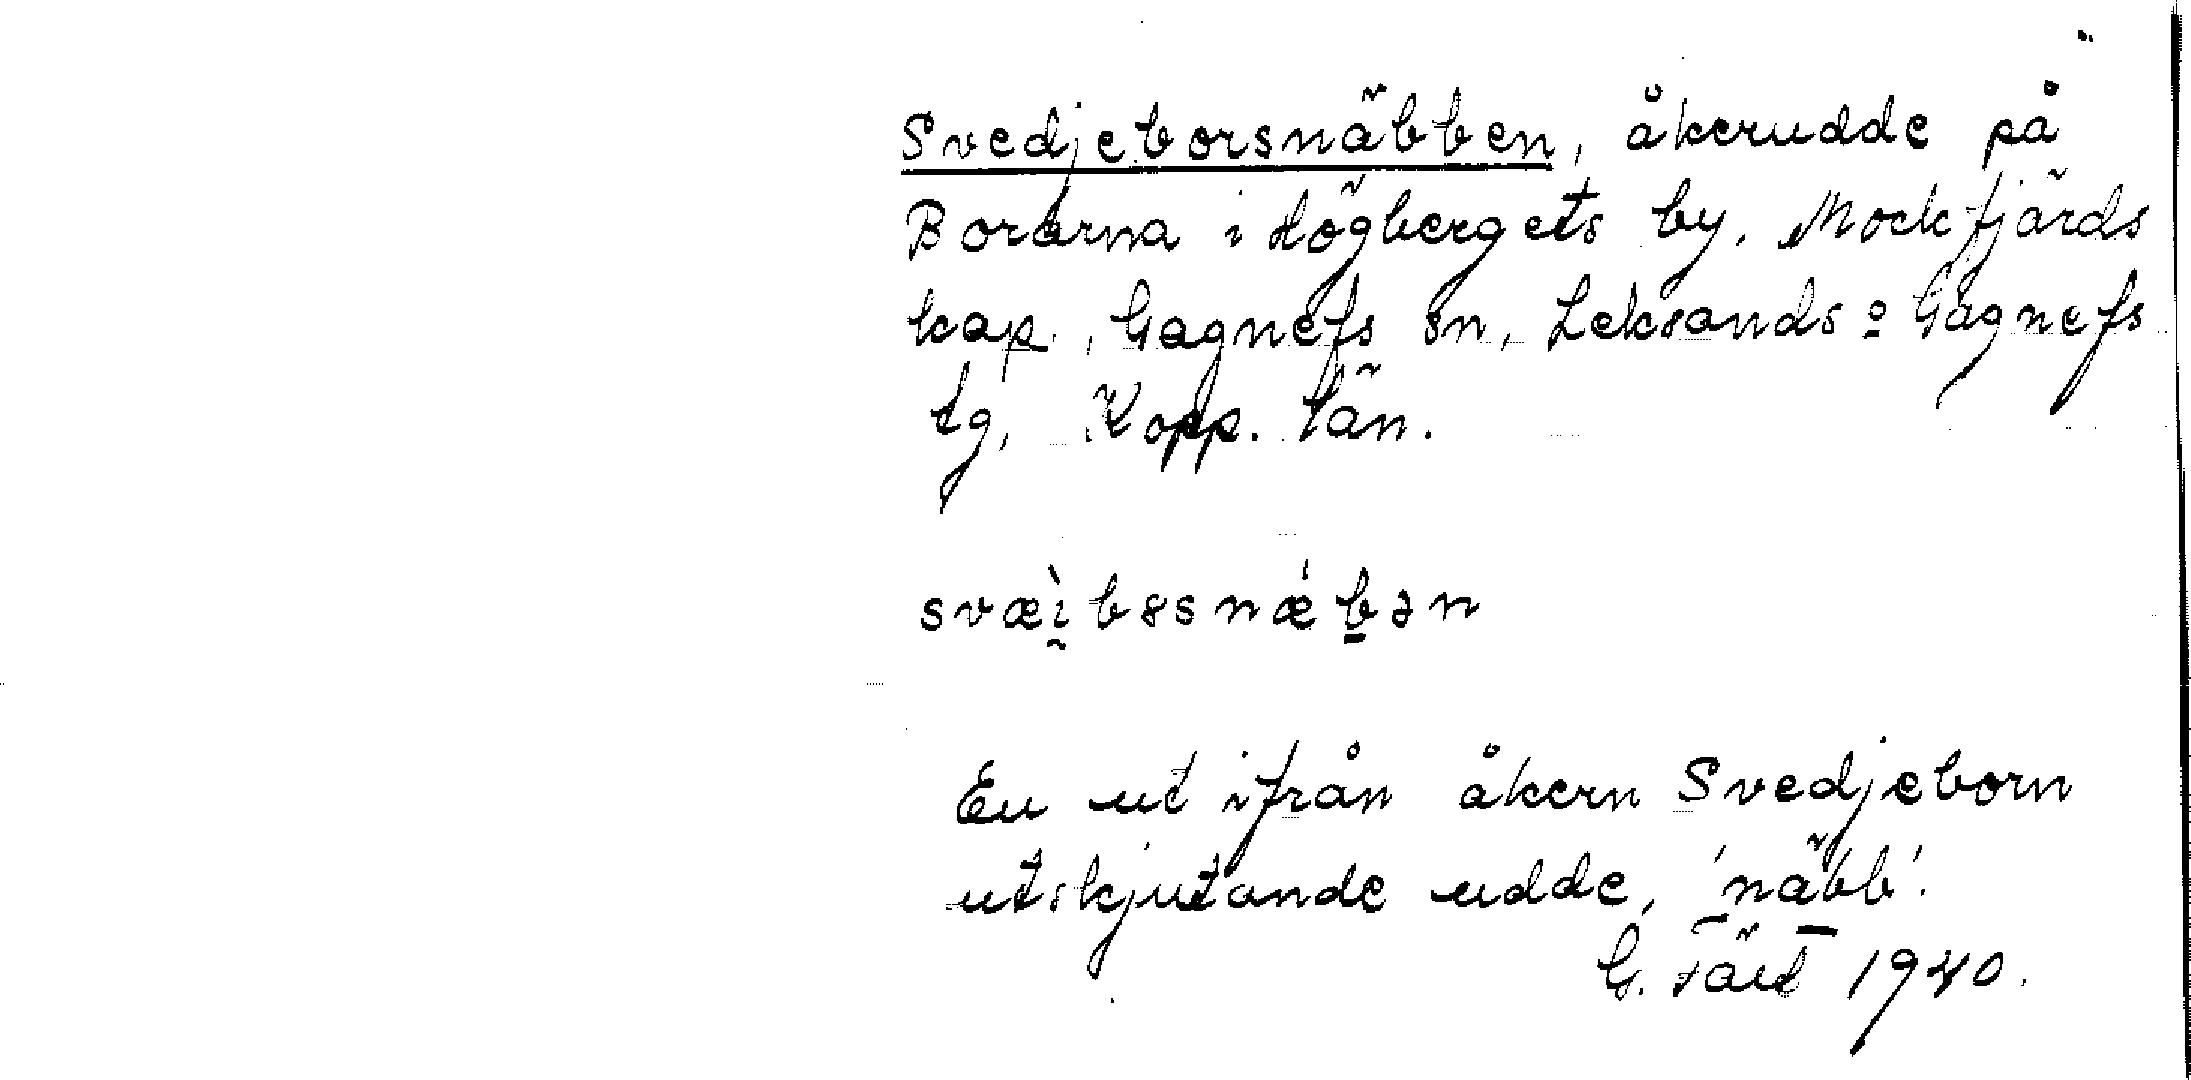 Svedjeborsnäbben, åkerudde på
Borarna i Högbergets by, Mockfjärds
kap., Gagnefs sn, Leksands o Gagnefs
tg, Kopp. län.
svæ̀i̯bssnǽb̲ən
En ut ifrån åkern Svedjeborn
utskjutande udde, 'näbb'.
G. Täut 1940.